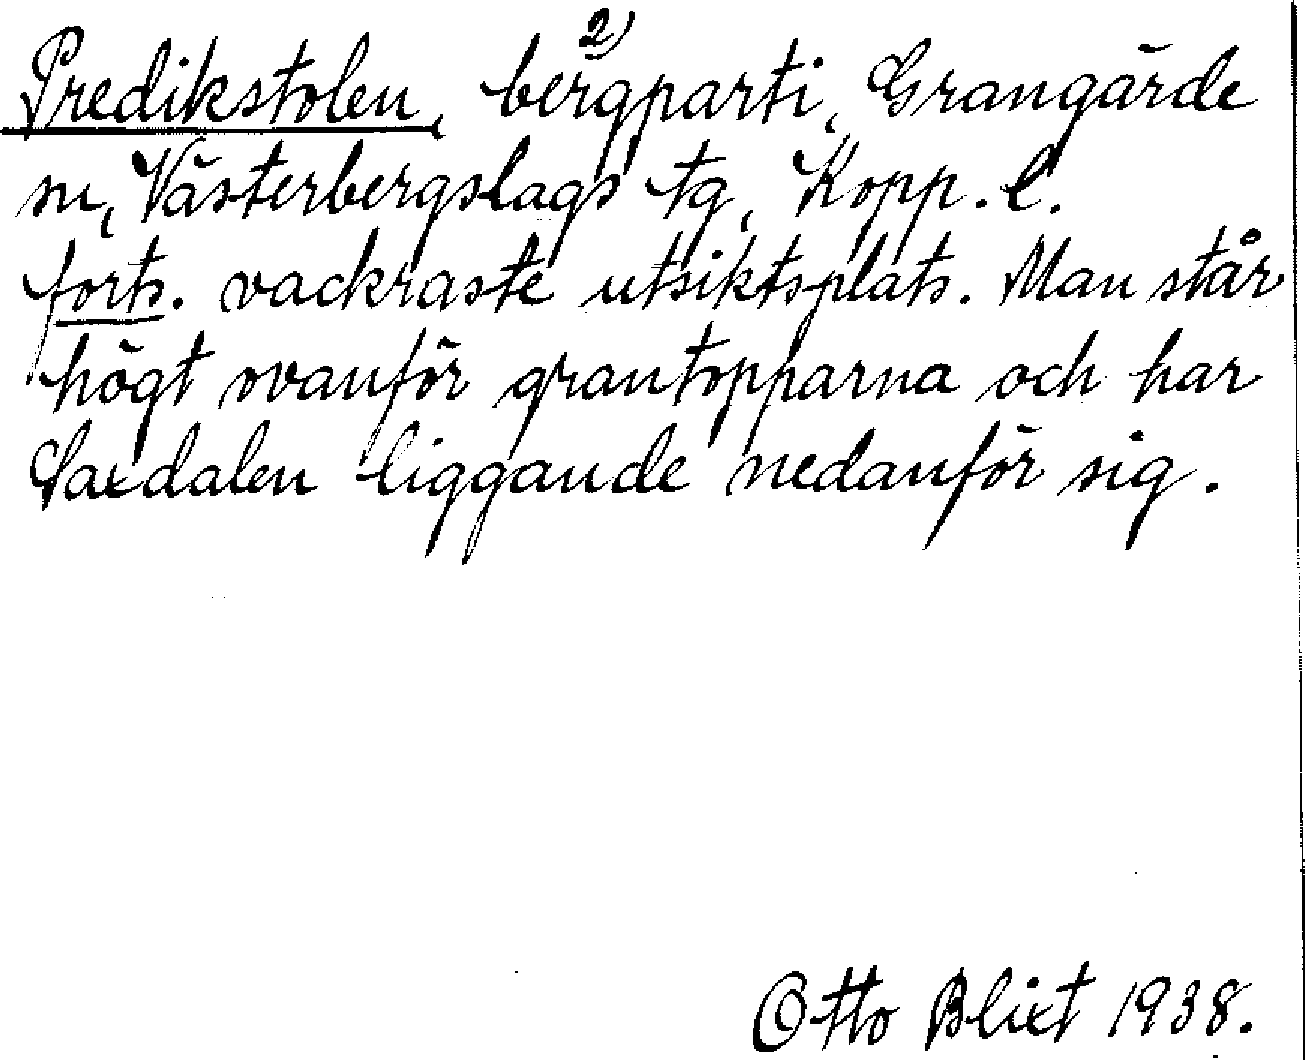 2)
Predikstolen, bergparti, Grangärde
sn, Västerbergslags tg, Kopp. l.
forts. vackraste utsiktsplats. Man står
högt ovanför grantopparna och har
Saxdalen liggande nedanför sig.
Otto Blixt 1938.